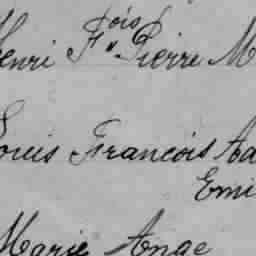 Henri Fois Pierre M
Louis Francois Ad
Emi
Marie Ange